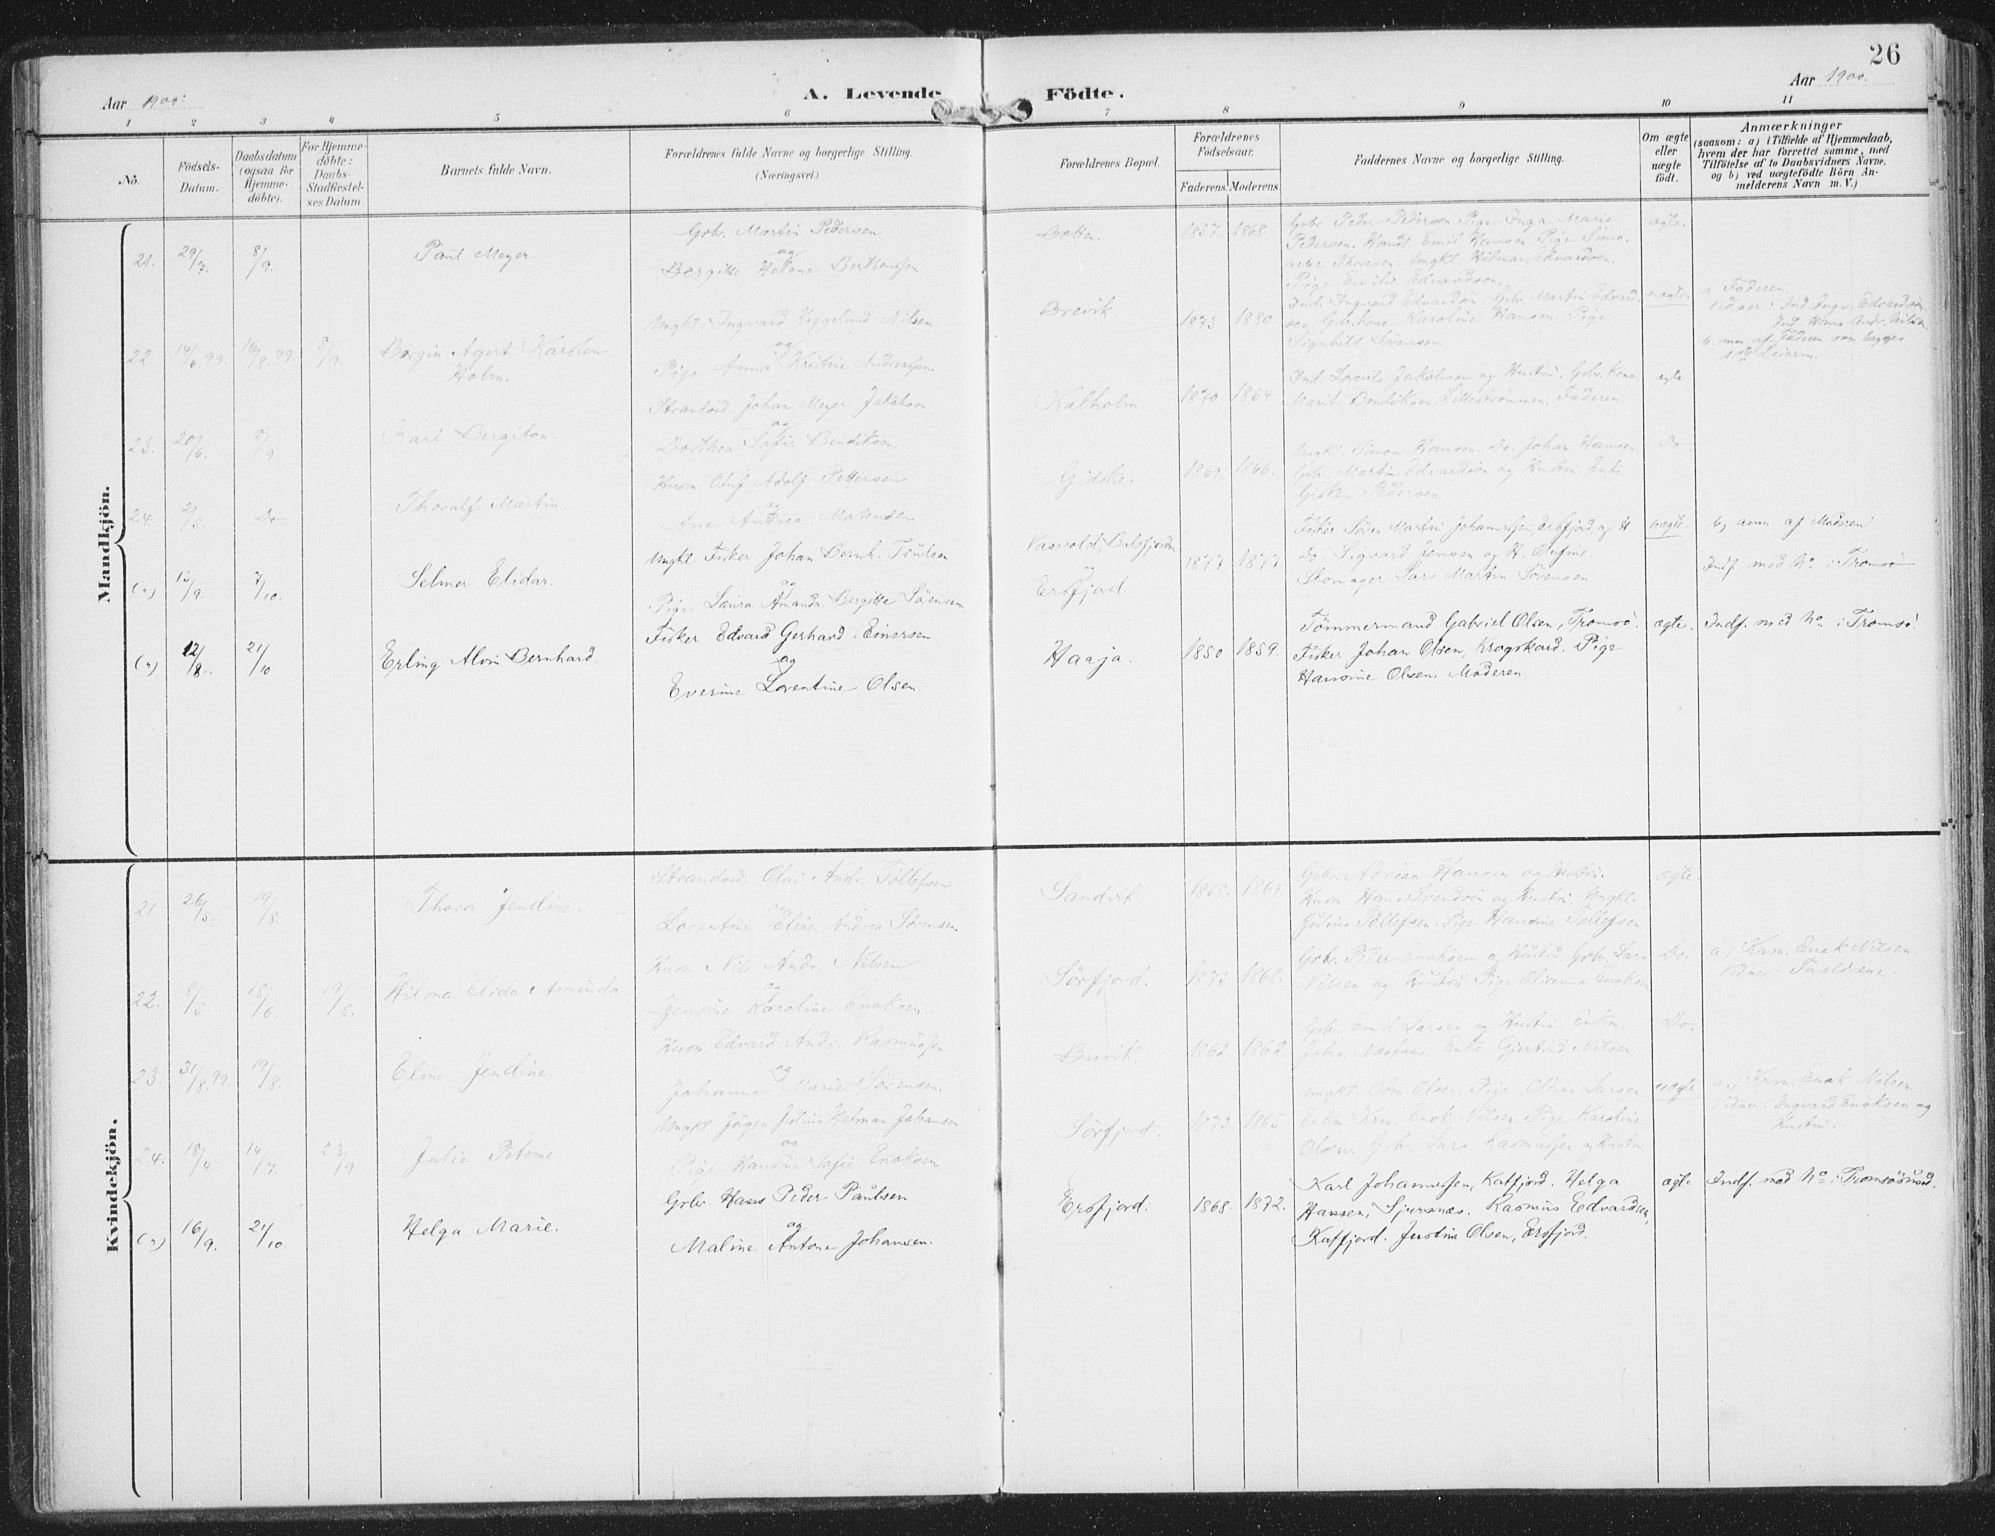 26
Aar 1900.
A. Levende Födte.
Aar 1900.
1 2 3 4 5 6 7 8 9 10 11
No.
Födsels-
Datum.
Daabsdatum
(ogsaa for
Hjemme-
döbte).
For Hjemme-
döbte:
Daabs-
Stadfæstel-
ses Datum.
Barnets fulde Navn.
Forældrenes fulde Navne og borgerlige Stilling.
(Næringsvei.)
Forældrenes Bopæl.
Forældrenes
Födselsaar.
Faderens. Moderens.
Faddernes Navne og borgerlige Stilling.
Om ægte
eller
uægte
födt.
Anmærkninger
(saasom: a) i Tilfælde af Hjemmedaab,
hvem der har forrettet samme, med
Tilföielse af to Daabsvidners Navne,
og b) ved uægtefödte Börn An-
melderens Navn m. V.)
Mandkjön.
21. 29/7. 8/9. Paul Meyer.
Gbr. Martin Pedersen
og
Bergitte Helene Berthensen
Botten. 1857. 1868.
Gbr. Peder Pedersen. Pige Inga Marie
Pedersen. Emil Hansen. Pige
Ungkl. Hilmar Edvardsen.
Pige Emilie Edvardsen.
ægte.
22. 14/6 99. 16/8. 99 8/9. Bergin Agert Karsten
Holm.
Ungkl. Ingvard Higgelund Nilsen
og
Pige Anna Kristine Andreassen
Brevik. 1873 1880
Ind. Ingvard Edvardsen. Gbr. Martin Edvard-
sen. Gbr.kone Karoline Hansen. Pige
Signhild Sörensen.
uægte
a. Faderen.
Vidner: Ind. Ingv. Edvardsen
Ind. Hans Andr. Nilsen
b. anm. af Faderen som begges
1ste Leierm.
23. 20/6. 8/9. Karl Bergiton
Strandsid. Johan Meyer Jakobsen
og
Dorthea Sofie Bendiksen
Kalholm 1870 1864
Ind. Lorents Jakobsen og Hustru. Gbr. kone
Marit Bendiksen, Lillestrømmen. Faderen.
ægte
24. 21/5. Do Thoralf Martin
Husm. Oluf Adolf Pettersen
og
Ane Andrea Matensen
Gjdske. 1869. 1866.
Ungkl. Simon Hansen. Do. Johan Hansen
Gbr. Martin Edvardsen og Hustru. Enke
Gisken Pedersen.
Do.
(") 12/9. 7/10. Selmer Elidar.
Ungkl. Fisker Johan Bernh. Trulsen
og
Pige Laura Amanda Bergitte Sörensen
Vasvold, Balsfjorden
Ersfjord. 1877 1877
Fisker Sören Martin Johannessen, Ersfjord og H
Do Sigvard Jensen og H. Olufine.
Skomager Lars Martin Sörensen
uægte.
b, anm af Moderen
Indf. med No i Tromsö
(") 12/8. 21/10 Erling Alvin Bernhard.
Fisker Edvard Gerhard Einersen
og
Everine Lorentine Olsen
Haaja. 1850 1859.
Tömmermand Gabriel Olsen, Tromsö.
Fisker Johan Olsen, Krogskard. Pige
Hansine Olsen. Moderen
ægte.
Indf. med No i Tromsö.
Kvindekjön.
21 26/5. 19/8. Thora Jendine.
Strandsid. Olai Andr. Tollefsen
og
Lorentine Eline Andrea Sörensen.
Sandvik. 1868. 1869.
Gbr. Adrian Hansen og Hustru.
Husm. Hans Svendsen og Hustru. Ungkl.
Julius Tollefsen. Pige Hansine Tollefsen
ægte
22. 8/5. 18/6. 19/8. Hilma Elida Amunda
Husm Nils Andr. Nilsen
og
Jensine Karoline Enoksen
Sörfjord. 1873 1868.
Gbr. Peder Enoksen og Hustru. Gbr. Lars
Nilsen og Hustru Pige Oliana Enoksen
Do.
a.) Krm. Enok Nilsen.
Vidner: Forældrene.
23. 31/8.99 19/8. Eline Jendine.
Husm. Edvard Andr. Rasmussen
og
Johanna Marie Sörensen.
Buvik. 1862 1862.
Gbr. Emil Larsen og Hustru. Enken
Enke Gjertrud Nilsen.
Do.
24. 18/4. 14/7. 23/9. Julie Petrine
Ungkl. Jörgen Julius Hetman Johansen
og
Pige Hansine Sofie Enoksen
Sörfjord. 1873 1865
Ungkl. Olai Olsen. Pige Oldine Larsen
Enkm. Krm. Enok Nilsen Pige Karoline
Olsen. Gbr. Lars Rasmussen og Hustru
uægte
a.) Krm. Enok Nilsen.
Vidner: Ingvard Enoksen og
Hustru.
(") 16/9. 21/10. Helga Marie.
Gbr Hans Peder Paulsen
og
Maline Antone Johansen.
Ersfjord. 1868. 1872.
Karl Johannessen, Katfjord. Helga
Hansen, Sjursnæs. Rasmus Edvardsen,
Katfjord. Justine Olsen, Ersfjord.
ægte
Indf. med No i Tromsösund.